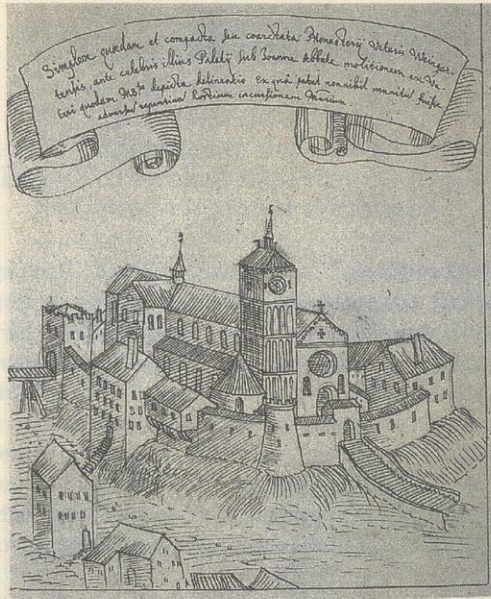 Simplex quædam et compacta seu coarctata Monasterij Veteris Weingar-
tensis ante celebris illius Palatij sub Joanne Abbate molitionem ex Ve
teri quodam depicta delineatio ex quâ patet nonnihil munitū fuisse
adversus hostium incursionem Murum